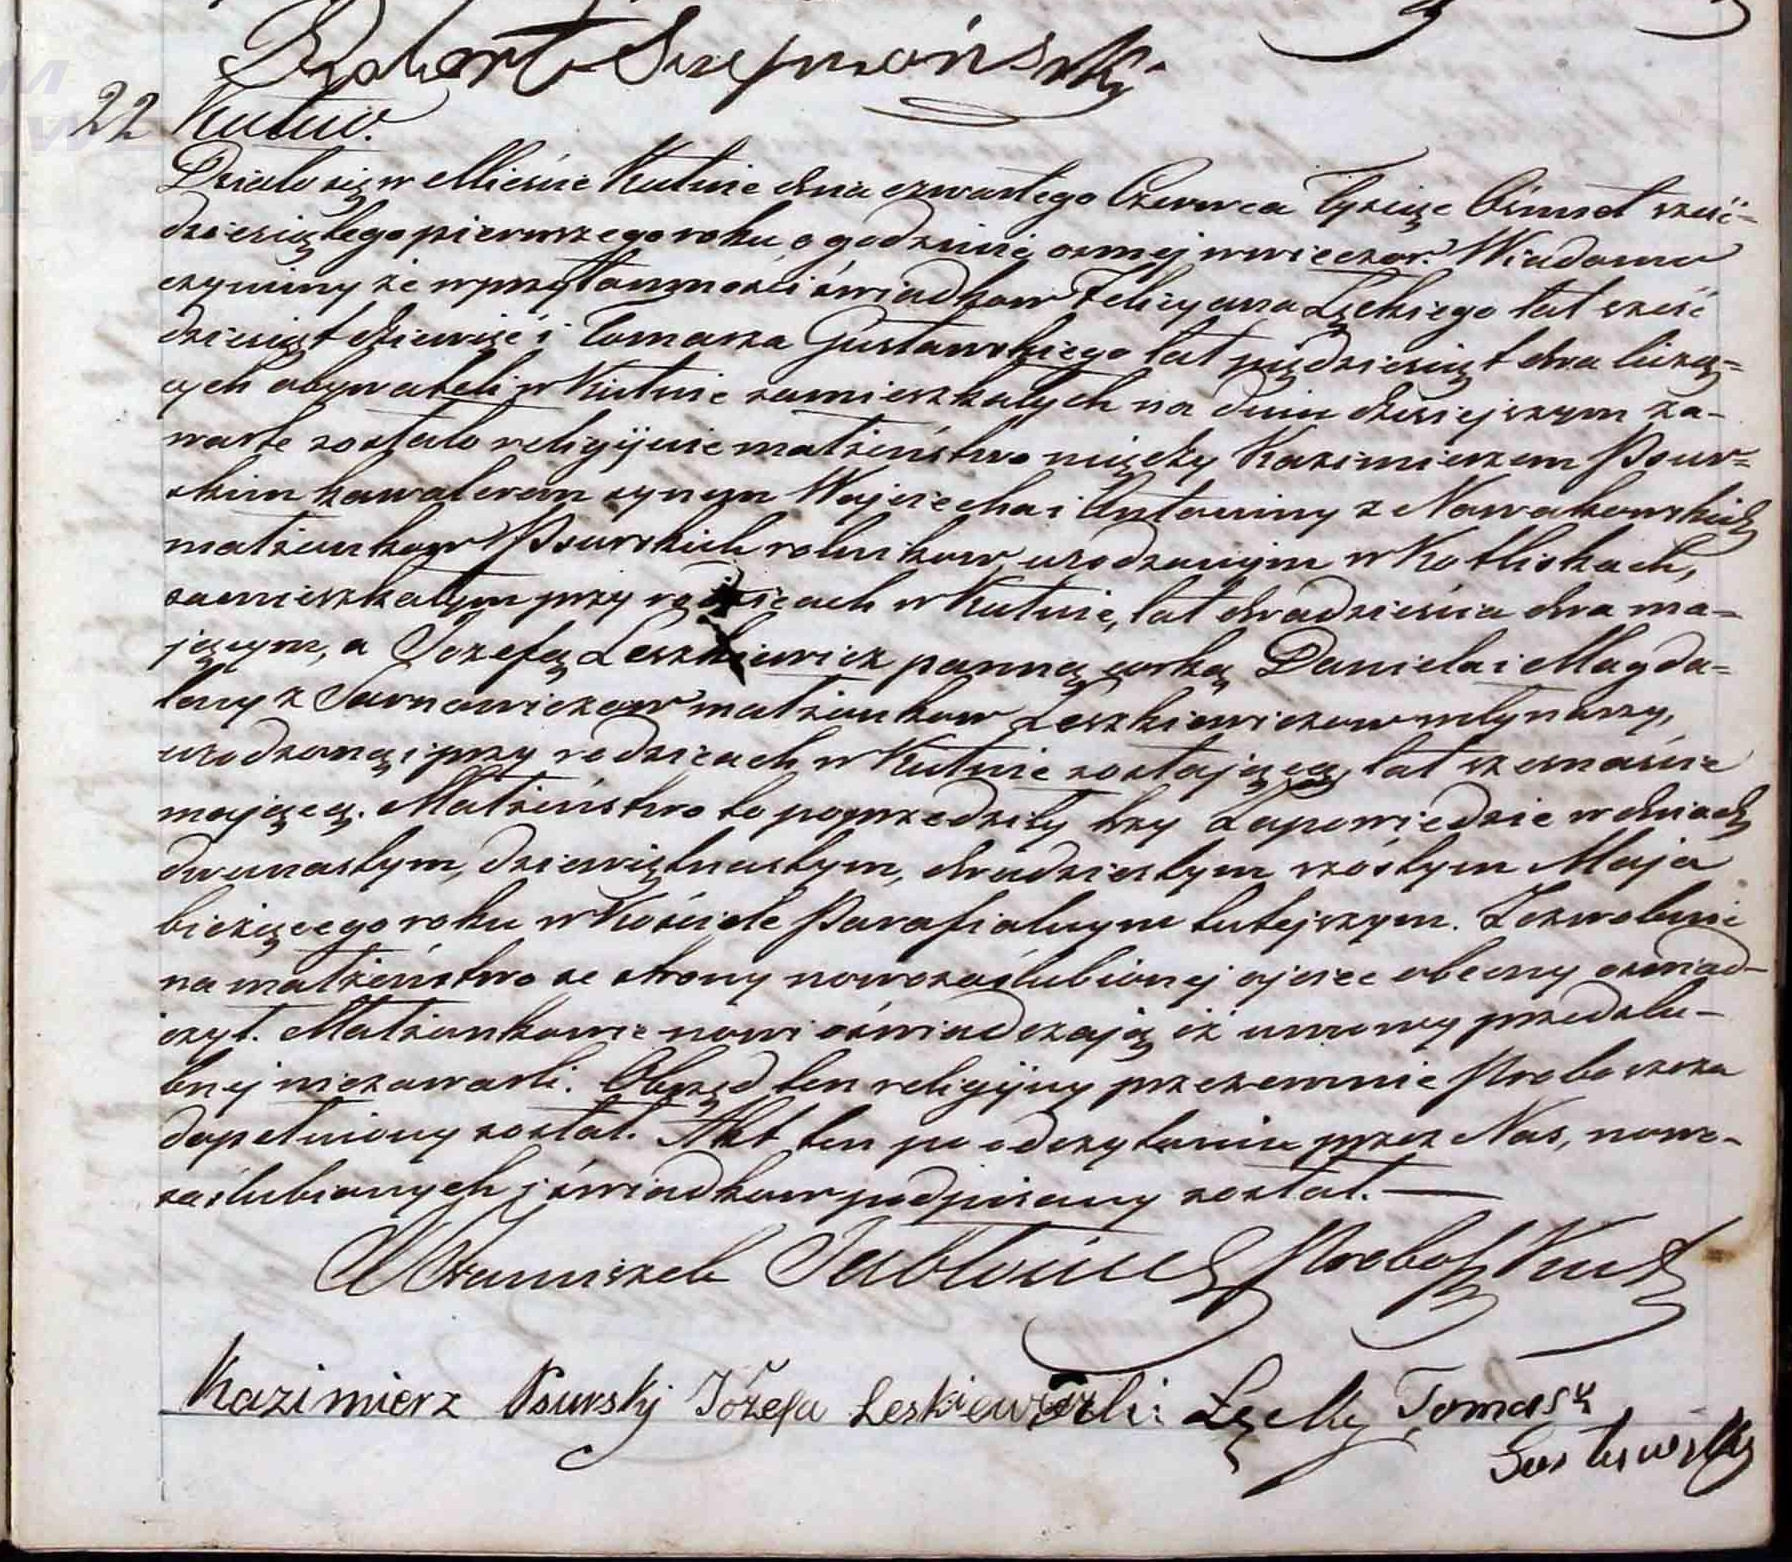 Robert Szczepański
22 Kutno.
Działo się w Mieście Kutnie dnia czwartego Czerwca Tysiąc Ośmset sześć=
dziesiątego pierwszego roku o godzinie osmej wwieczor. Wiadomo
czyniemy że wprzytomności świadkow Felicyana Łęckiego lat sześć
dziesiąt dziewięć i Tomasza Gustawskiego lat pięćdziesiąt dwa licżą=
cych obywateli w Kutnie zamieszkałych na dniu dzisiejszym za-
warte zostało religijnie małżeństwo między Kazimierzem Psur=
skim kawalerem synem Wojciecha i Antoniny z Nowakowskich
małżonkow Psurskich rolnikow, urodzonym w Kotliskach,
zamieszkałym przy rodzicach w Kutnie, lat dwadzieścia dwa ma=
jącym, a Jozefą Leszkiewicz panną corką Daniela i Magda=
leny z Tarnowiczow małżonkow Leszkiewiczow młynarzy,
urodzoną i przy rodzicach w Kutnie zostającą, lat szesnaście
mającą. Małżeństwo to poprzedziły trzy Zapowiedzie w dniach
dwunastym, dziewiętnastym, dwudziestym szóstym Maja
bieżącego roku w Kościele Parafialnym tutejszym. Zezwolenie
na małżeństwo ze strony nowozaślubionej ojciec obecny oświad-
czył. Małżonkowie nowi oświadczają iż umowy przedślu-
bnej niezawarli. Obrząd ten religijny przezemnie Proboszcza
dopełniony został. Akt ten po odczytaniu przez Nas, nowo-
zaślubionych i świadkow podpisany został.—
Franciszek Probos Kut
Kazimierz Psurskj Józefa Leskiewicz Łęcky Tomasz
Gustawsky